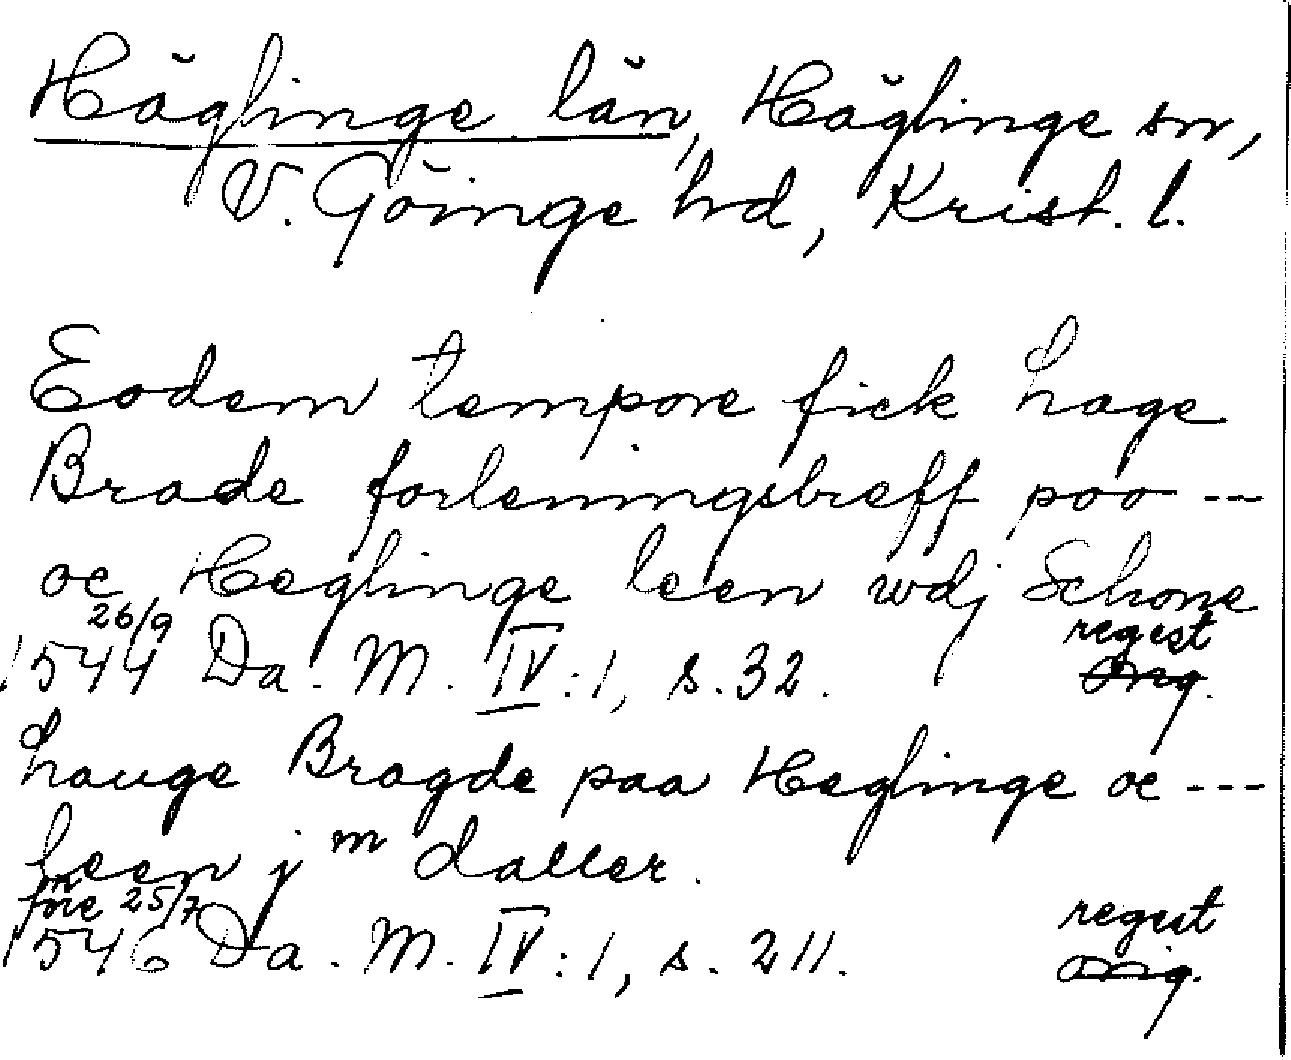 Häglinge län, Häglinge sn,
V. Göinge hd, Krist. l.
Eodem tempore fick Lage
Brade forleningsbreff poo ---
oc Heglinge leen wdj Schone
26/9 regest
1544 Da. M. IV:1, s. 32. orig.
Lauge Bragde paa Heglinge oc ---
leen j m daller.
före 25/7 regest
1546 Da. M. IV:1, s. 211. orig.